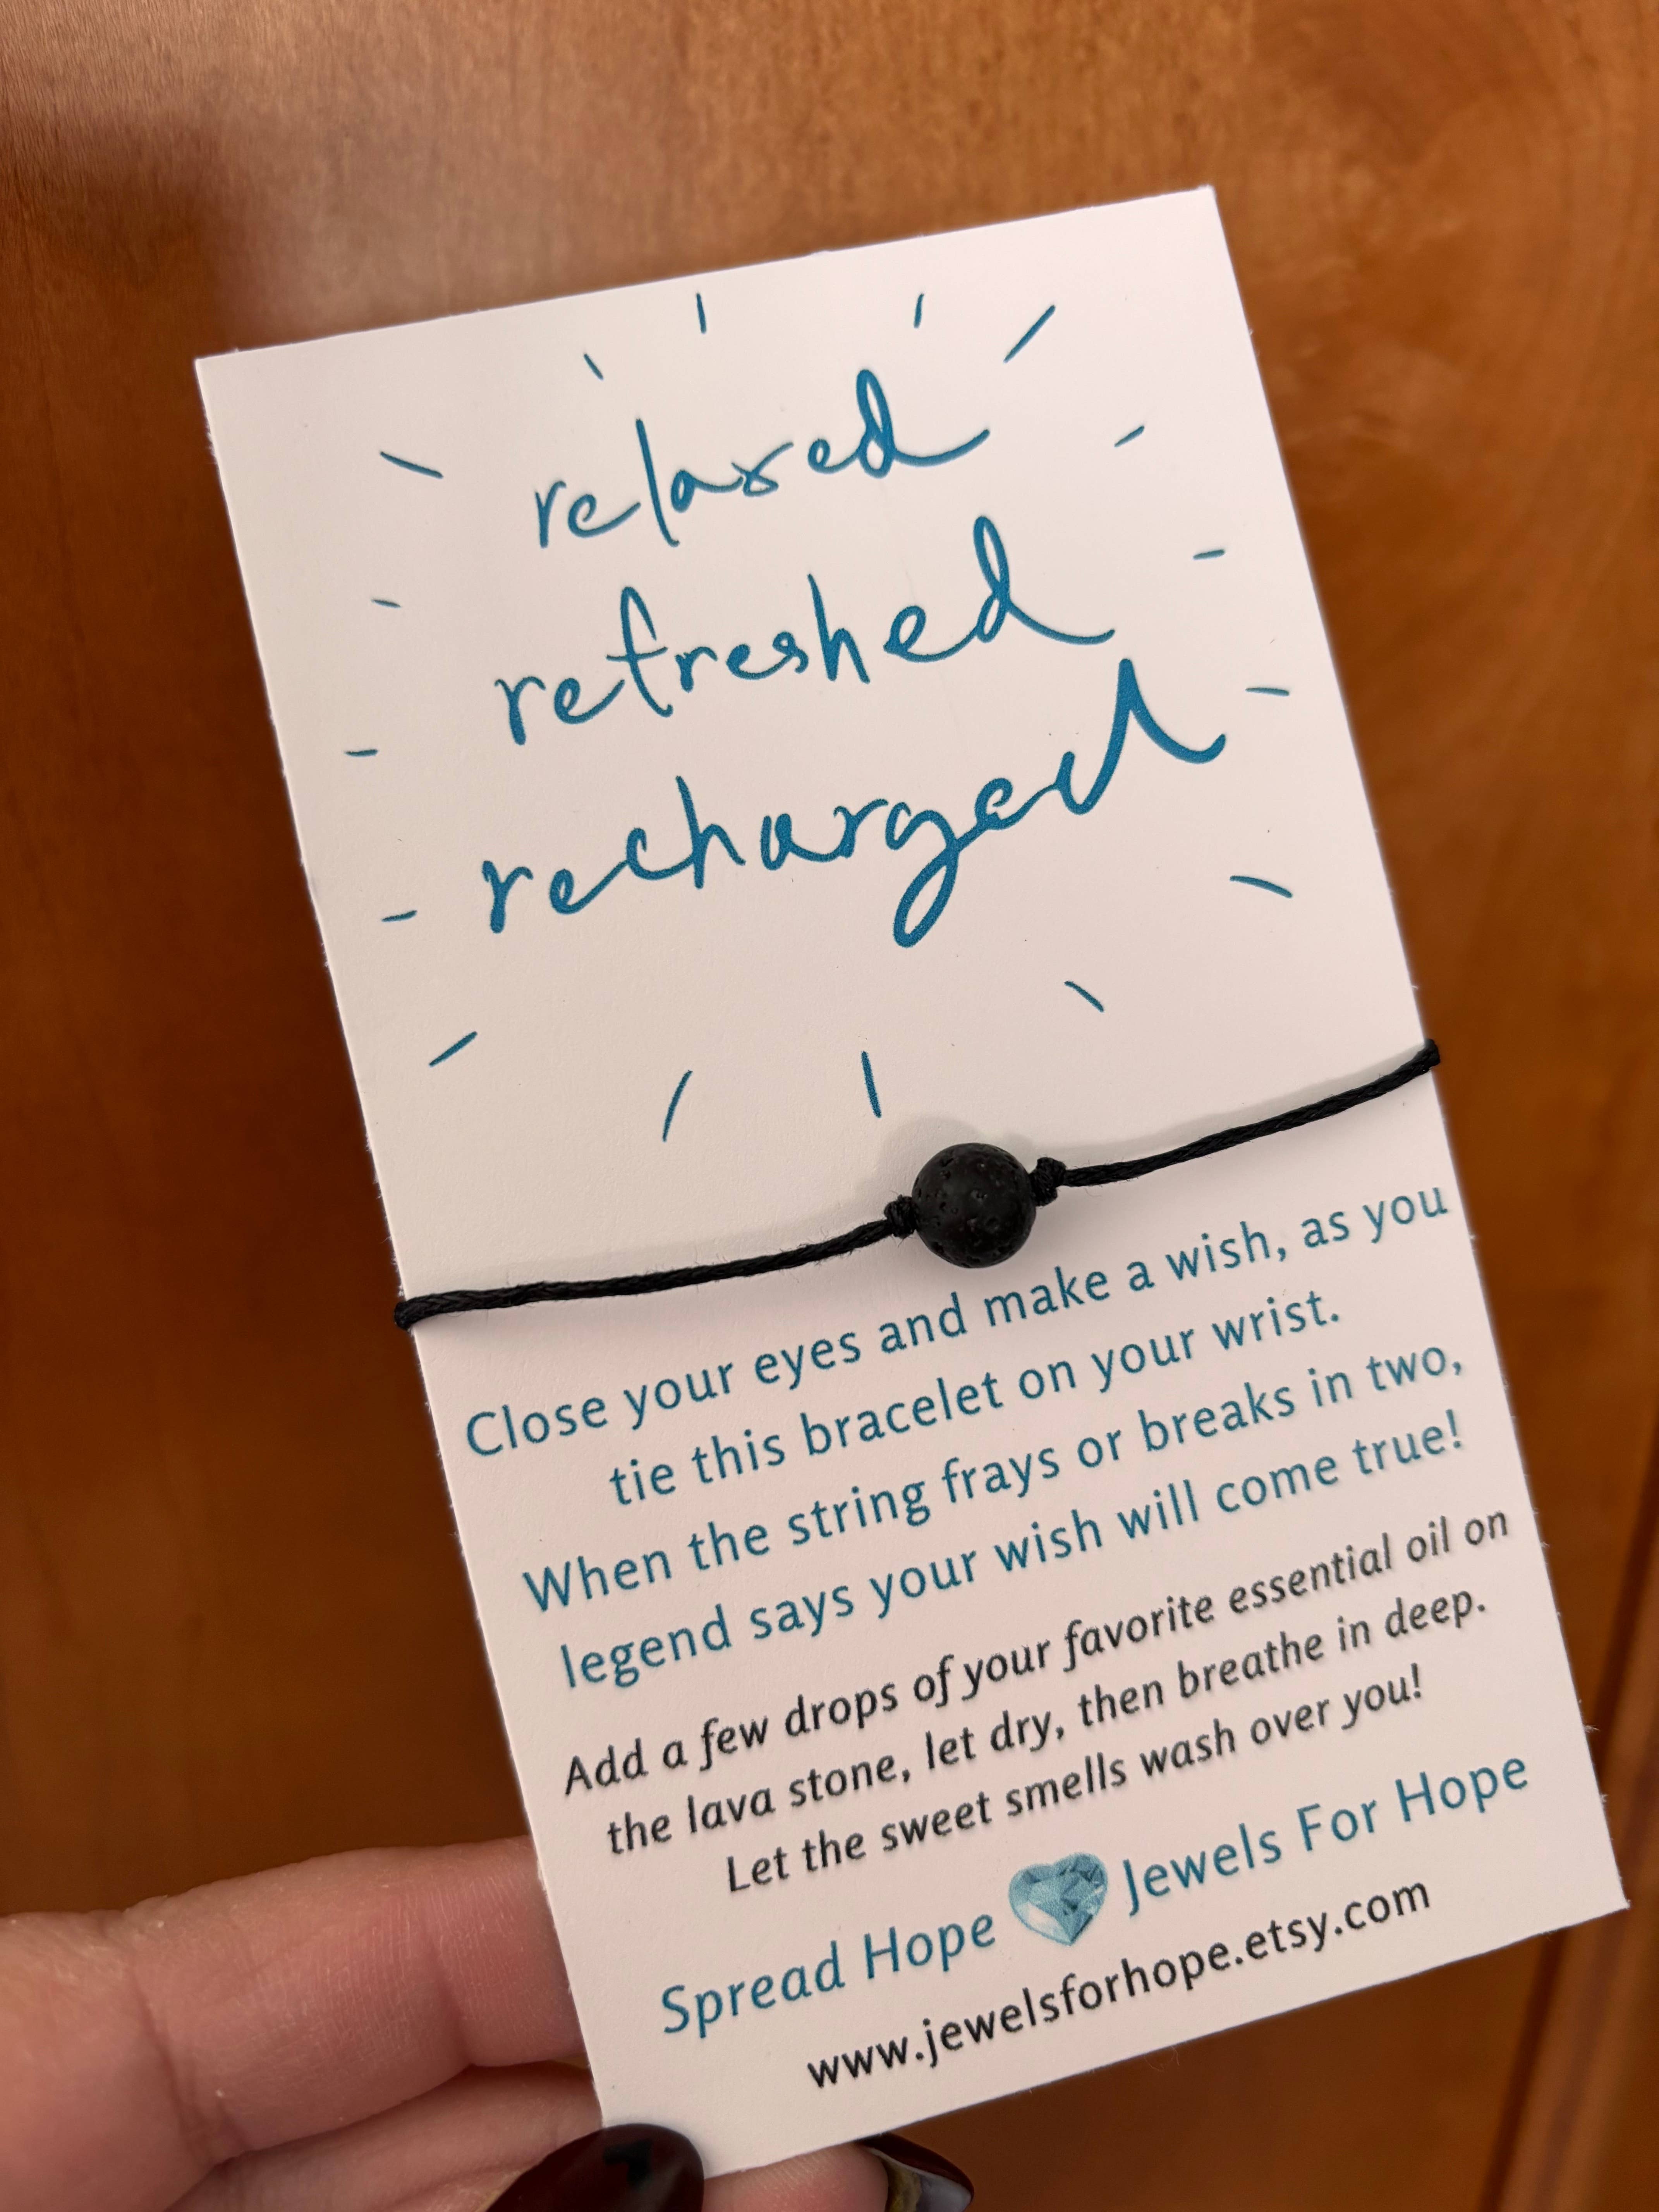 relaxed
refreshed
recharged
Close your eyes and make a wish, as you
tie this bracelet on your wrist.
When the string frays or breaks in two,
legend says your wish will come true!
Add a few drops of your favorite essential oil on
the lava stone, let dry, then breathe in deep.
Let the sweet smells wash over you!
Spread Hope Jewels For Hope
www.jewelsforhope.etsy.com